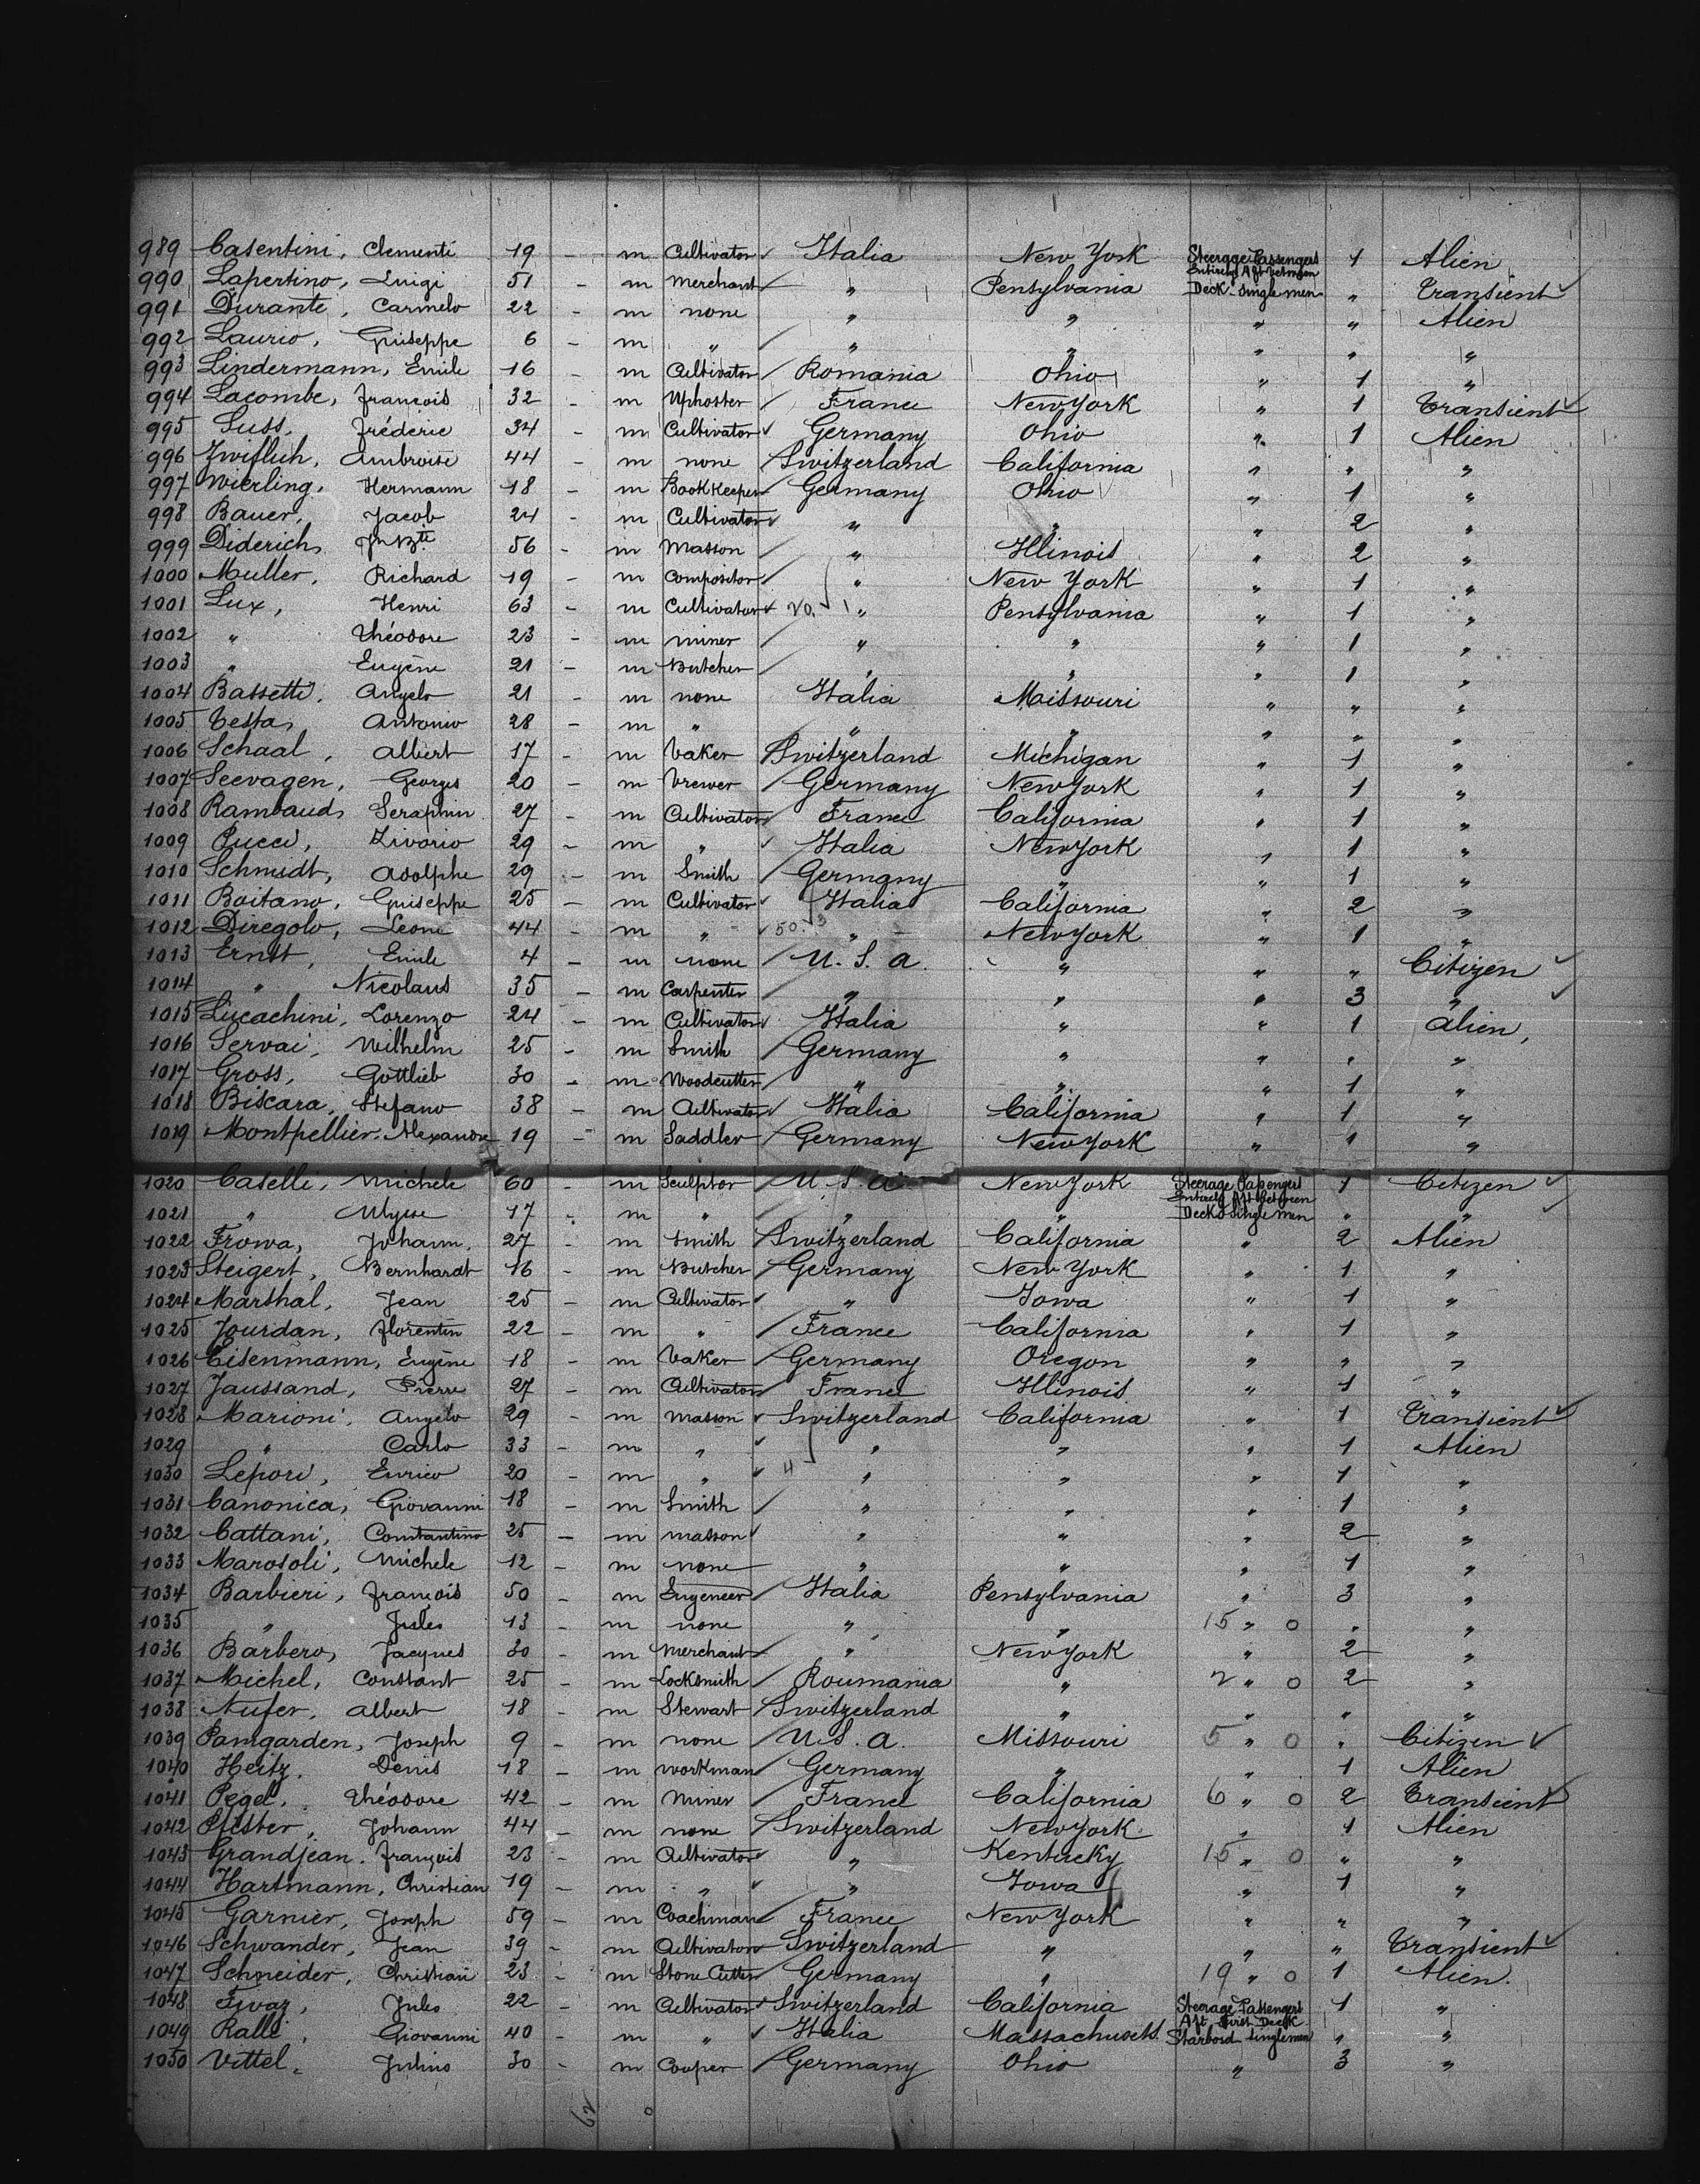 989 Casentini, Clementi 19 - m Cultivator Italia New York Steerage Passengers Entirely Aft between Deck. Single men 1 Alien
990 Lapertino, Luigi 51 - m Merchant " Pensylvania " Transient
991 Durante, Carmelo 22 - m none " " " " Alien
992 Laurio, Giuseppe 6 - m " " " " " "
993 Lindermann, Emile 16 - m Cultivator Romania Ohio " 1 "
994 Lacombe, François 32 - m Upholster France New York " 1 Transient
995 Luss, Fréderic 34 - m Cultivator Germany Ohio " 1 Alien
996 Zwiflich, Ambroise 44 - m none Switzerland California " " "
997 Wierling, Hermann 18 - m BookKeeper Germany Ohio " 1 "
998 Bauer, Jacob 24 - m Cultivator " " " 2 "
999 Diderich, Jn Bte 56 - m Masson " Illinois " 2 "
1000 Muller, Richard 19 - m Compositor " New York " 1 "
1001 Lux, Henri 63 - m Cultivator 20. 1 " Pensylvania " 1 "
1002 " Théodore 23 - m miner " " " 1 "
1003 " Eugène 21 - m Butcher " " " 1 "
1004 Bassetti, Angelo 21 - m none Italia Moissouri " " "
1005 Testa, Antonio 28 - m " " " " " "
1006 Schaal, Albert 17 - m baker Switzerland Michigan " 1 "
1007 Seevagen, Georges 20 - m brewer Germany New York " 1 "
1008 Rambaud, Seraphin 27 - m Cultivator France California " 1 "
1009 Pucci, Livorio 29 - m " Italia New York " 1 "
1010 Schmidt, Adolphe 29 - m Smith Germany " " 1 "
1011 Boitano, Guiseppe 25 - m Cultivator Italia California " 2 "
1012 Diregolo, Leone 44 - m " 50. 3 " New York " 1 "
1013 Ernst, Emile 4 - m none U. S. a. " " " Citizen
1014 " Nicolaus 35 - m Carpenter " " " 3 "
1015 Lucachini, Lorenzo 24 - m Cultivator Italia " " 1 Alien,
1016 Servai, Wilhelm 25 - m Smith Germany " " " "
1017 Gross, Gottlieb 30 - m Woodcutter " " " 1 "
1018 Biscara, Stefano 38 - m Cultivator Italia California " 1 "
1019 Montpellier, Alexandre 19 - m Saddler Germany New York " 1 "
1020 Caselli, Michele 60 - m Sculptor U. S. a New York Steerage Passengers Entirely Aft between Deck Single men 1 Citizen
1021 " Ulysse 17 - m " " " " "
1022 Frowa, Johann. 27 - m Smith Switzerland California " 2 Alien
1023 Steigert, Bernhardt 16 - m Butcher Germany New York " 1 "
1024 Marshal, Jean 25 - m Cultivator " Iowa " 1 "
1025 Jourdan, Florentin 22 - m " France California " 1 "
1026 Eisenmann, Eugène 18 - m baker Germany Oregon " " "
1027 Jaussand, Pierre 27 - m Cultivator France Illinois " 1 "
1028 Marioni, Angelo 29 - m Masson Switzerland California " 1 Transient
1029 " Carlo 33 - m " " " " 1 Alien
1030 Lepori, Enrico 20 - m " 4 " " " 1 "
1031 Canonica, Giovanni 18 - m Smith " " " 1 "
1032 Cattani, Constantino 25 - m masson " " " 2 "
1033 Marosoli, Michele 12 - m none " " " 1 "
1034 Barbieri, François 50 - m Engeneer Italia Pensylvania " 3 "
1035 " Jules 13 - m none " " 15 " 0 " "
1036 Barbero, Jacques 30 - m Merchant " New York " 2 "
1037 Michel, Constant 25 - m Locksmith Roumania " 2 " 0 2 "
1038 Nufer, Albert 18 - m Stewart Switzerland " " " "
1039 Pamgarden, Joseph 9 - m none U. S. a. Missouri 5 " 0 " Citizen
1040 Heitz, Denis 18 - m workman Germany " " 1 Alien
1041 Pegel, Théodore 42 - m Miner France California 6 " 0 2 Transient
1042 Pfister, Johann 44 - m none Switzerland New York " 1 Alien
1043 Grandjean, François 23 - m Cultivator " Kentucky 15 " 0 " "
1044 Hartmann, Christian 19 - m " " Iowa " 1 "
1045 Garnier, Joseph 59 - m Coachman France New York " " "
1046 Schwander, Jean 39 - m Cultivator Switzerland " " " Transient
1047 Schneider, Christian 23 - m Stone Cutter Germany " 19 " 0 1 Alien.
1048 Fivaz, Jules 22 - m Cultivator Switzerland California Steerage Passengers Aft First Deck Starbord Singlemen 1 "
1049 Ralli, Giovanni 40 - m " Italia Massachusets " "
1050 Vittel, Julius 30 - m Cooper Germany Ohio " 3 "
62 0